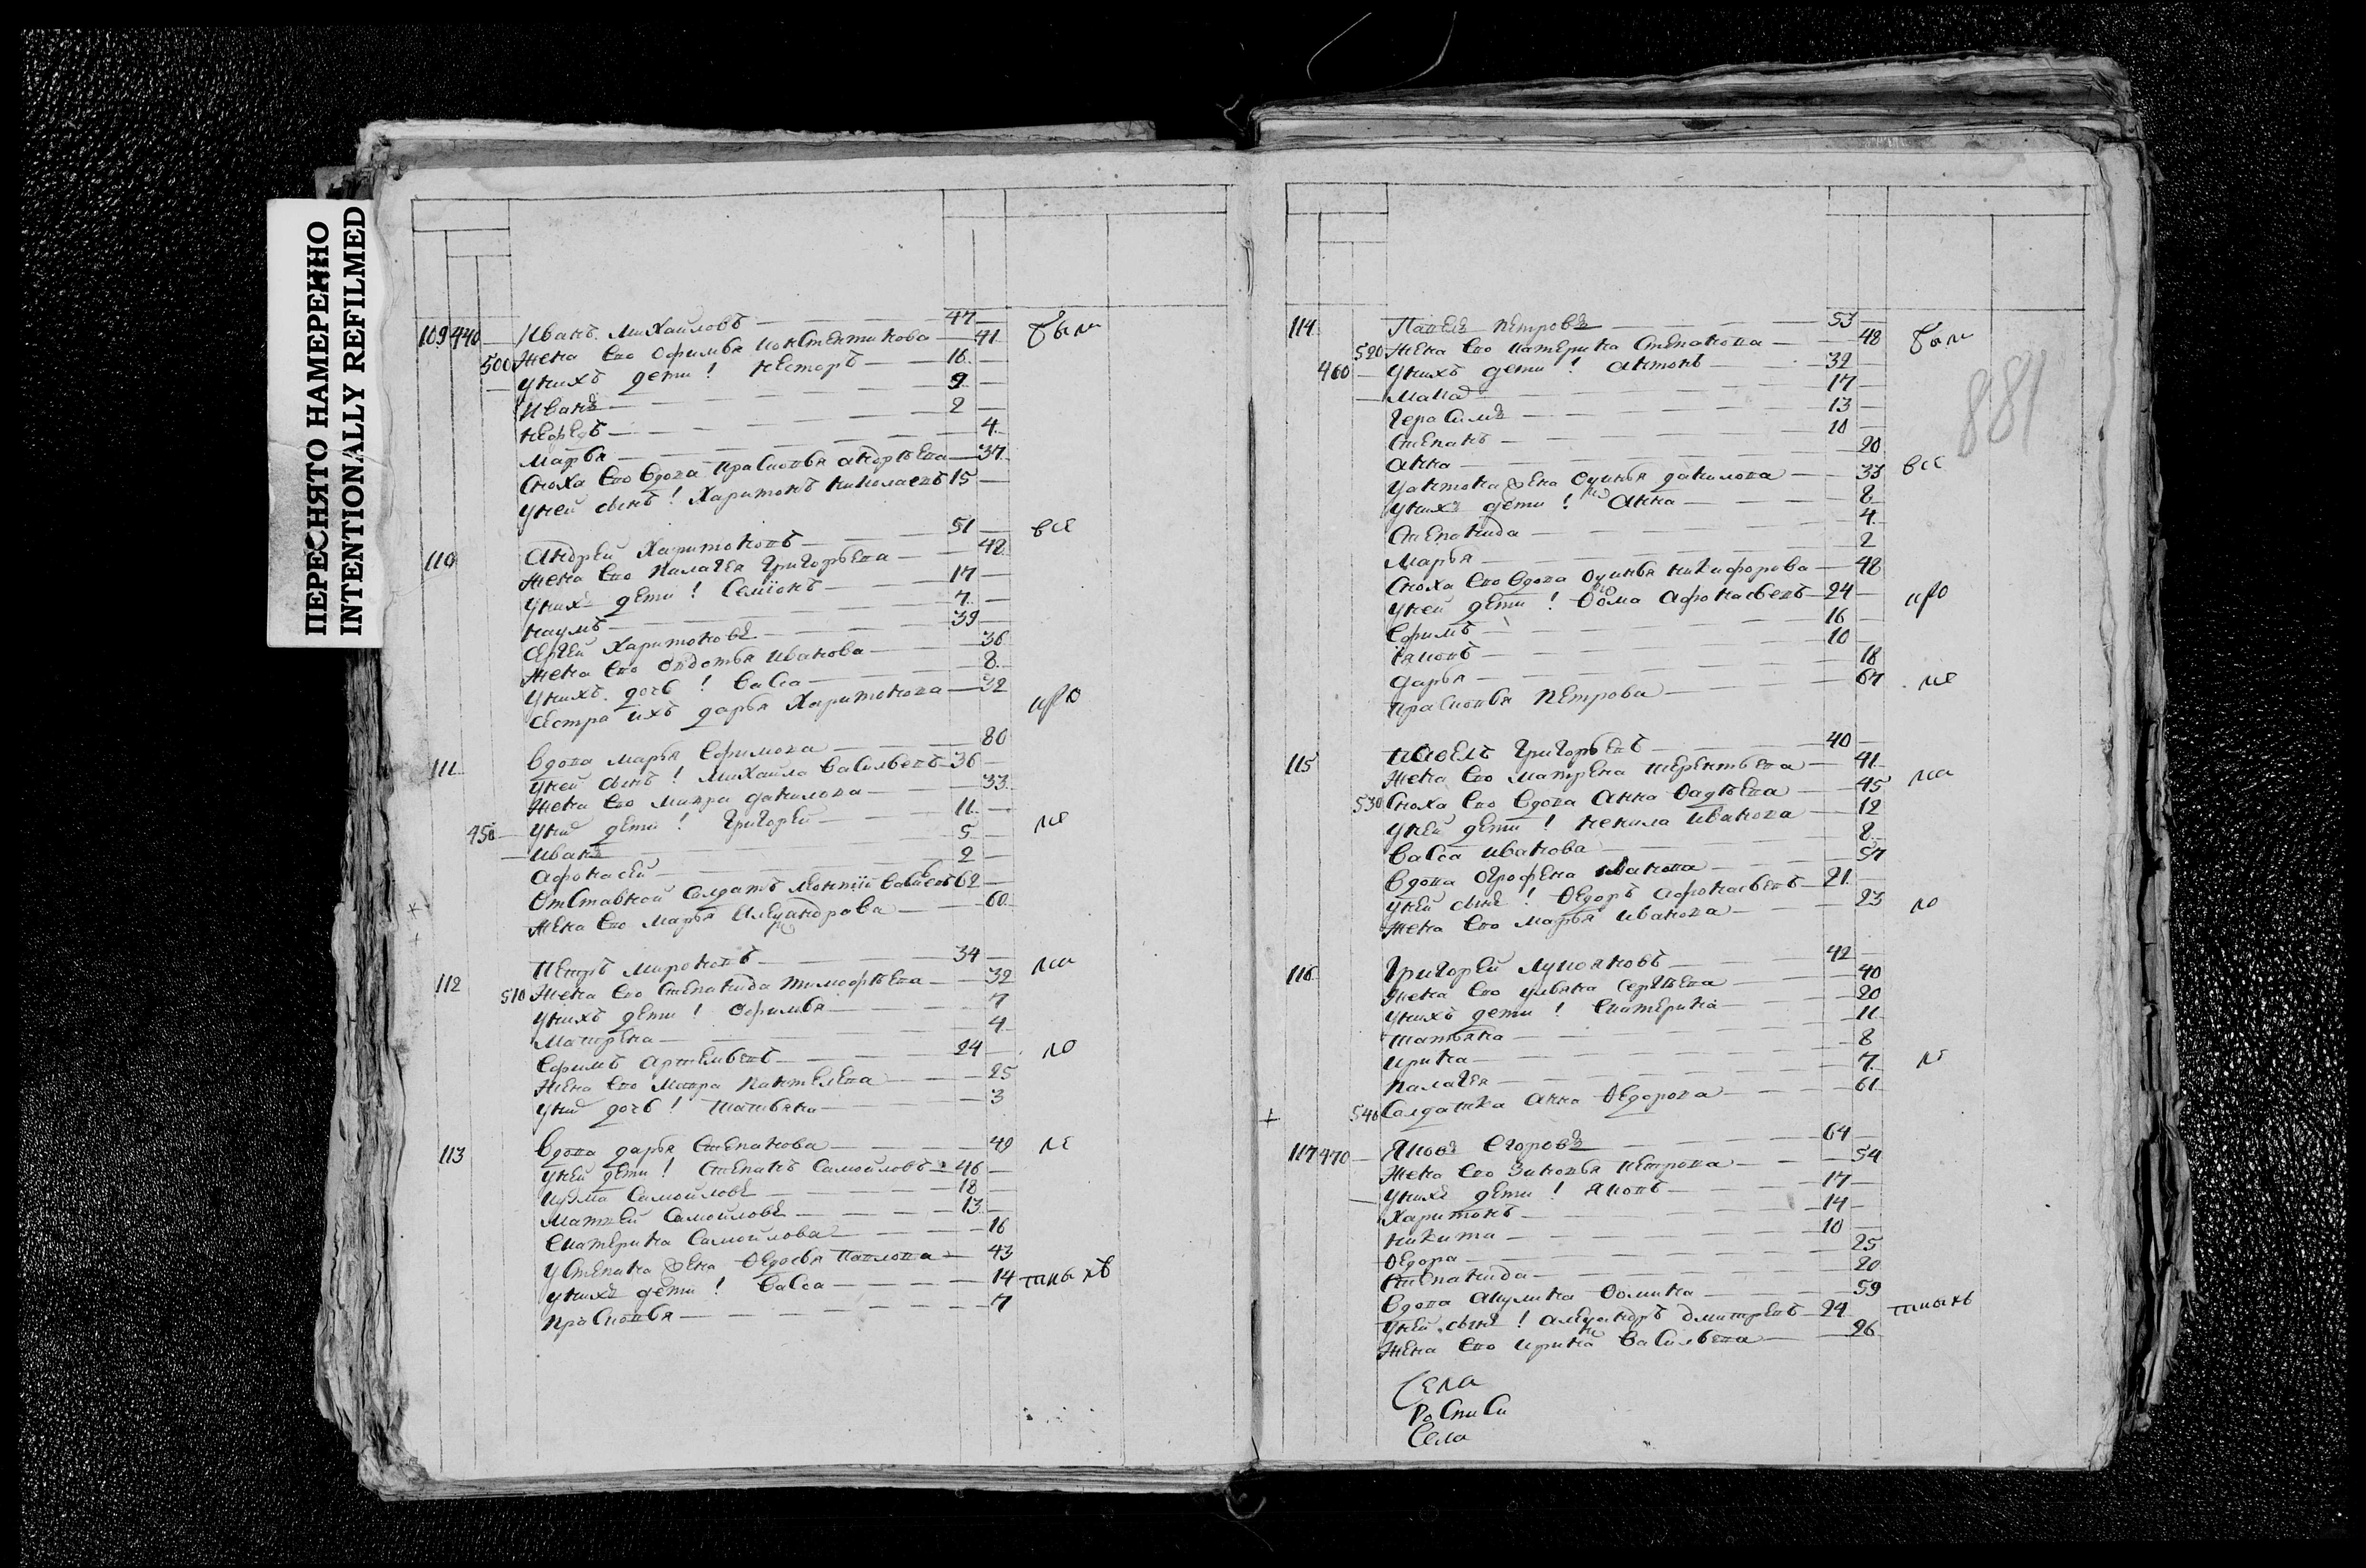 ПЕРЕСНЯТО НАМЕРЕННО
INTENTIONALLY REFILMED
109 440 — Иванъ Михайловъ — 47 — были
Жена Ево Офимья Констентинова — 41
500 Унихъ дети! Несторъ — 16 —
Иванъ — 9 —
Нефедъ — 2 —
Марфа — 4
Сноха Ево Вдова Прасковья Андрѣева — 37
Уней сынъ! Харитонъ Николаевъ 15 —
110 Андрей Харитоновъ — 51 — все
Жена Ево Палагея Григорьева — 48
Унихъ дети! Семіонъ — 17 —
Наумъ — 7 —
Сергей Харитоновъ — 39 —
Жена Ево Овдотья Иванова — 36
Унихъ дочь! Васса — 8
Сестра ихъ дарья Харитонова — 32
про
111 Вдова Марья Ефимова — 80
Уней сынъ! Михайла Васильевъ 36 —
Жена Ево Мавра данилова — 33
450 — Унихъ дети! Григорей — 11 —
— Иванъ — 5 — ше
Афонасей — 2 —
Отставной Солдатъ Леонтій 62 —
Жена Ево Марья Александрова — 60
112 Петръ Мироновъ — 34 —
510 Жена Ево Степанида Тимофѣева — 32
Унихъ дети! Офимья — 7
Матрена — 4
Ефимъ Артемьевъ — 24 —
Жена Ево Мавра Пантелева — 25
Унихъ дочь! Татьяна — 3
113 Вдова дарья Степанова — 49
Уней дети! Степанъ Самойловъ 46 —
Кузма Самойловъ — 18 —
Матвей Самойловъ — 13 —
Екатерина Самойлова — 16
У Степана Жена Федосья Павлова — 43
Унихъ дети! Васса — 14
Прасковья — 7
881
114 Павелъ Петровъ — 53 — были
520 Жена Ево Катерина Степанова — 48
460 — Унихъ дети! Антонъ — 32 —
— 17 —
Герасимъ — 13 —
Степанъ — 10 —
Анна — 20
Уантона Жена Оксинья данилова — 33 все
Унихъ дети! Анна — 8
Степанида — 4
Марья — 2
Сноха Ево Вдова Оксинья Никифорова — 48
Уней дети! Фома Афонасьевъ — 24 —
Ефимъ — 16 —
Іяковъ — 10 —
дарья — 18
Прасковья Петрова — 67
115 Павелъ Григорьевъ — 40 —
Жена Ево Матрена Терентьева — 41
530 Сноха Ево Вдова Анна Фадѣева — 45
Уней дети! Ненила Иванова — 12
Васса Иванова — 8
Вдова Огрофена Иванова — 57
Уней сынъ! Федоръ Афонасьевъ 21 —
Жена Ево Марья Иванова — 23
116 Григорей Лукояновъ — 42 —
Жена Ево Ульяна Сергѣева — 40
Унихъ дети! Екатерина — 20
Татьяна — 11
Ирина — 8
Палагея — 7
540 Солдатка Анна Федорова — 61
117 470 — Яковъ Егоровъ — 64 —
Жена Ево Зиновья Петрова — 54
— Унихъ дети! Яковъ — 17 —
Харитонъ — 14 —
Никита — 10 —
Федора — 25
Степанида — 20
Вдова Акулина Фомина — 59
Уней сынъ! Александръ Дмитревъ — 24
Жена Ево Ирина Васильева — 26
Села
РоСпиСи
Села